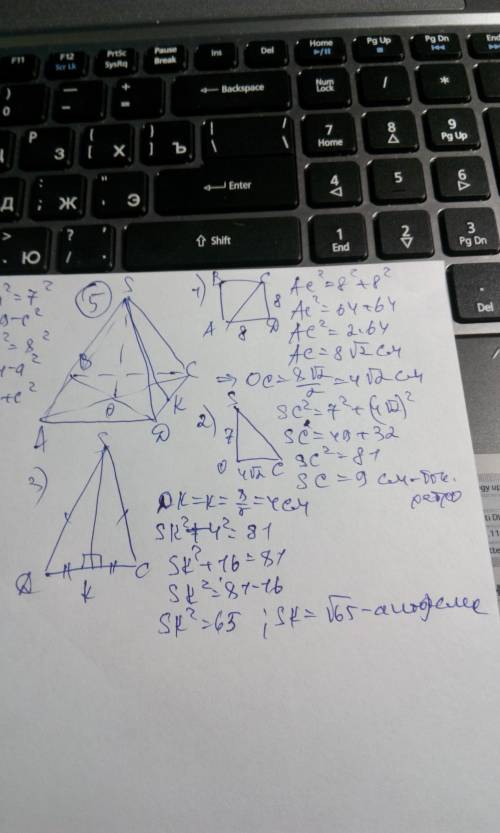 F11
F12
Scr Lk
PrtSc
SysRq
Pause
Break
Ins
Del
Home
Pg Up
Pg Dn
End
)
0
—
-
+
=
Backspace
Num
Lock
/
*
Р
З
{
[ Х
}
] Ъ
|
\
/
\
7
Home
8
9
Pg Up
Д
:
; Ж
"
' Э
Enter
4
5
6
>
. Ю
?
/
Shift
1
End
2
3
Pg Dn
.
Del
= 7²
= 8²
+ c²
5
S
B
C
O
K
A
D
1)
B C
8
A 8 D
AC² = 8² + 8²
AC² = 64 + 64
AC² = 2·64
AC = 8√2 см
⇒ OC = 8√2/2 = 4√2 см
2)
S
7
O 4√2 C
SC² = 7² + (4√2)²
SC = 49 + 32
SC² = 81
SC = 9 см - бок.
ребро
3)
S
D K C
DK = K = 8/2 = 4 см
SK² + 4² = 81
SK² + 16 = 81
SK² = 81 - 16
SK² = 65 ; SK = √65 - апофема